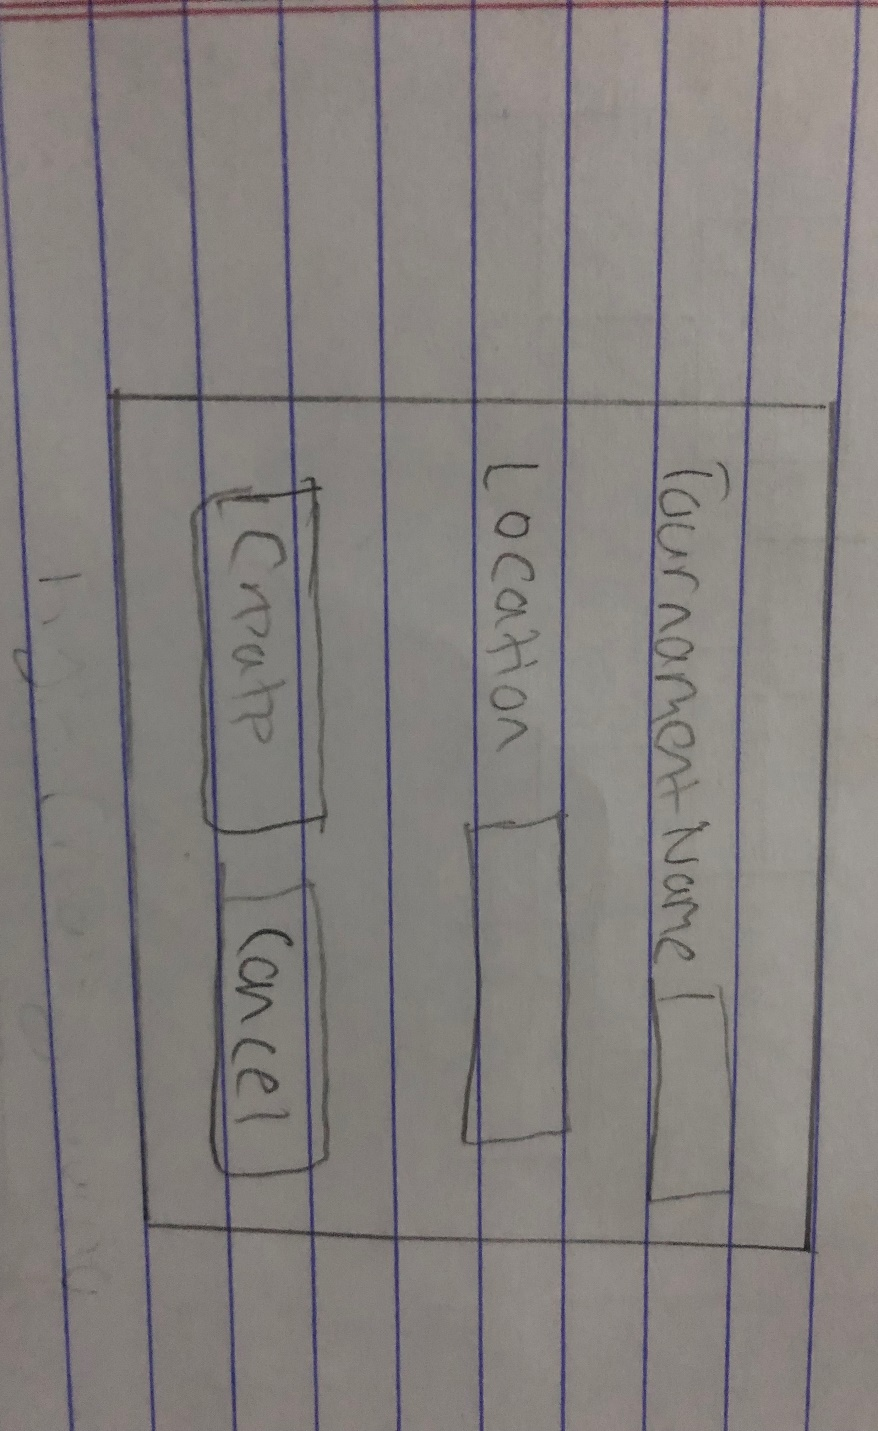 Tournament Name
Location
Create Cancel